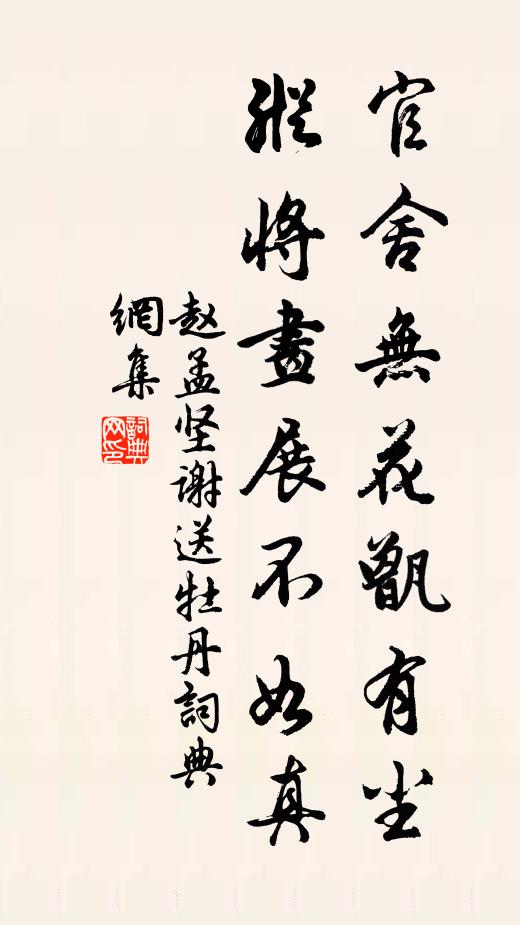 官舍無花甑有尘
縱將畫展不如真
赵孟坚谢送牡丹詞典
網集
詞典網印